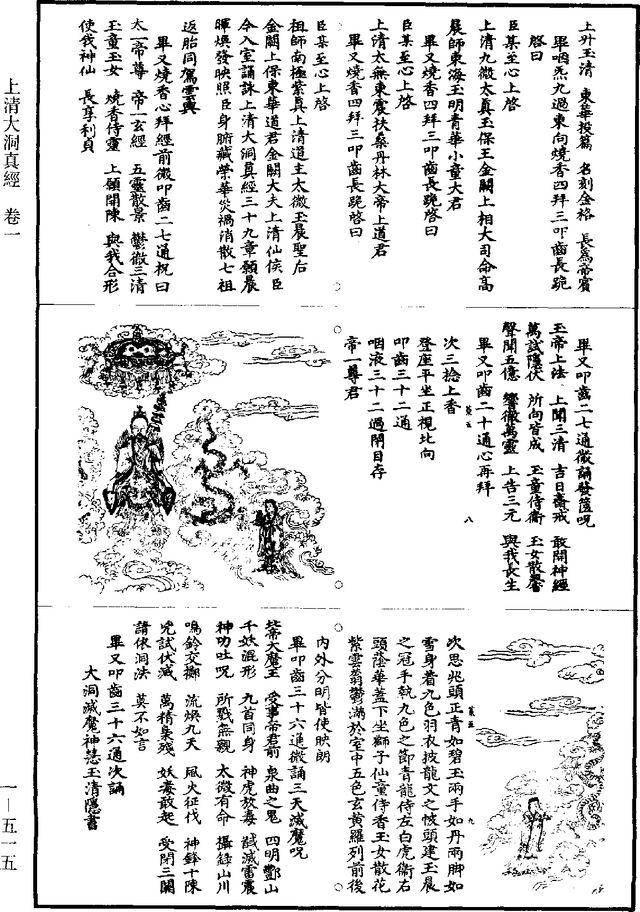 上清大洞真經　卷一
上升玉清　東華投篇　名刻金格　長爲帝賓
畢咽炁九過東向燒香四拜三叩齒長跪
啓曰
臣某至心上啓
上清九微太真玉保王金闕上相大司命高
晨師東海玉明青華小童大君
畢又燒香四拜三叩齒長跪啓曰
臣某至心上啓
上清太無東震扶桑丹林大帝上道君
畢又燒香四拜三叩齒長跪啓曰
臣某至心上啓
祖師南極紫真上清道主太微玉晨聖后
金闕上保東華道君金闕大夫上清仙侯臣
今入室誦詠上清大洞真經三十九章願晨
暉煥發映照臣身腑藏榮華災禍消散七祖
返胎同駕雲輿
畢又燒香心拜經前微叩齒二七通祝曰
太一帝尊　帝一玄經　五靈散景　鬱徹三清
玉童玉女　燒香侍靈　上願開陳　與我合形
使我神仙　長享利貞
畢又叩齒二七通微誦發篋呪
玉帝上法　上聞三清　吉日齋戒　敢開神經
萬試隱伏　所向皆成　玉童侍衛　玉女散馨
聲聞五億　響徹萬靈　上告三元　與我長生
畢又叩齒二十通心再拜
八
次三捻上香
登座平坐正視北向
叩齒三十二通
咽液三十二過閉目存
帝一尊君
次思兆頭正青如碧玉兩手如丹兩脚如
雪身着九色羽衣披龍文之帔頭建玉晨
九
之冠手執九色之節青龍侍左白虎衛右
頭蔭華蓋下坐獅子仙童侍香玉女散花
紫雲蓊鬱滿於室中五色玄黃羅列前後
內外分明皆使映朗
畢叩齒三十六通微誦三天滅魔呪
北帝大魔王　受事帝君前　泉曲之鬼　四明酆山
千妖混形　九首同身　神虎放毒　馘滅雷震
神功吐呪　所戮無親　太微有命　攝錄山川
鳴鈴交擲　流煥九天　風火征伐　神鋒十陳
凶試伏滅　萬精梟殘　妖毒敢起　受閉三關
請依洞法　莫不如言
畢又叩齒三十六通次誦
大洞滅魔神慧玉清隱書
一—五一五